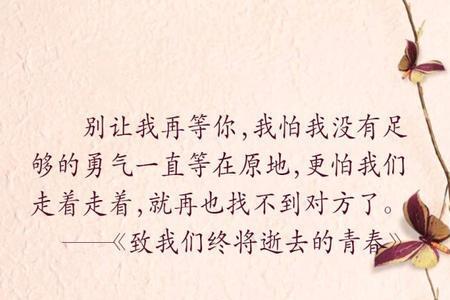 别让我再等你,我怕我没有足
够的勇气一直等在原地,更怕我们
走着走着,就再也找不到对方了。
——《致我们终将逝去的青春》